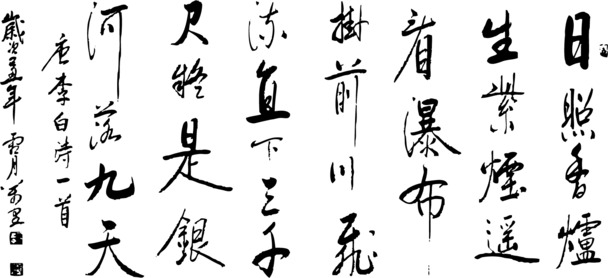 日照香爐
生紫煙遥
看瀑布
掛前川飛
流直下三千
尺疑是銀
河落九天
唐李白诗一首
歲次年 雪月